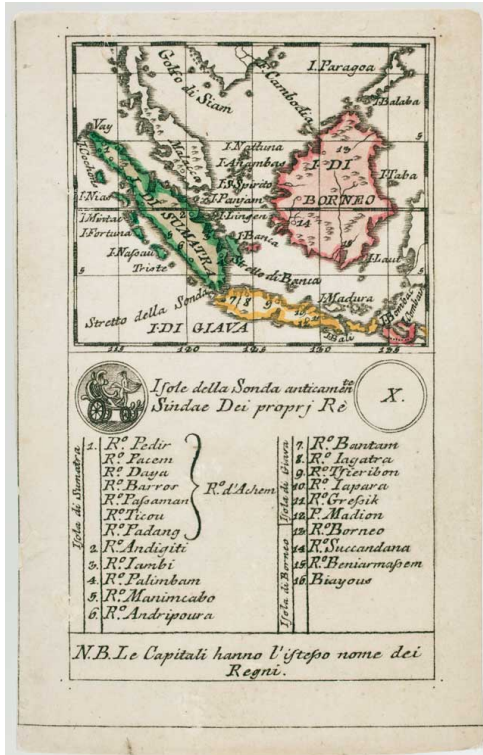 I. Paragoa
Golfo di Siam
Cambodia
I. Balaba
Vay
Malaca
I. Nattuna
I. Anambas
I. S. Spirito
I. Panjam
I. Lingen
I. Banca
I. DI
BORNEO
13
14
I. Taba
I. Laut
I. Cochone
I. Nias
I. Mintao
I. Fortuna
I. Nassau
Triste
I. DI SUMATRA
Stretto di Banca
Stretto della Sonda
7 8 9
I. Madura
I. Bali
I. DI GIAVA
5
5
5
5
115 120 125 130 135
Isole della Sonda anticamen.te
Sindae Dei proprj Rè
X.
Isola di Sumatra
1. R.o Pedir
R.o Pacem
R.o Daya
R.o Barros
R.o Passaman
R.o Ticou
R.o Padang
R.o d'Achem
2. R.o Andigiti
3. R.o Iambi
4. R.o Palimbam
5. R.o Manimcabo
6. R.o Andripoura
Isola di Giava
7. R.o Bantam
8. R.o Iagatra
9. R.o Tzieribon
10. R.o Iapara
11. R.o Gressik
12. P. Madion
Isola di Borneo
13. R.o Borneo
14. R.o Succandana
15. R.o Beniarmassem
16. Biayous
N.B. Le Capitali hanno l'istesso nome dei
Regni.